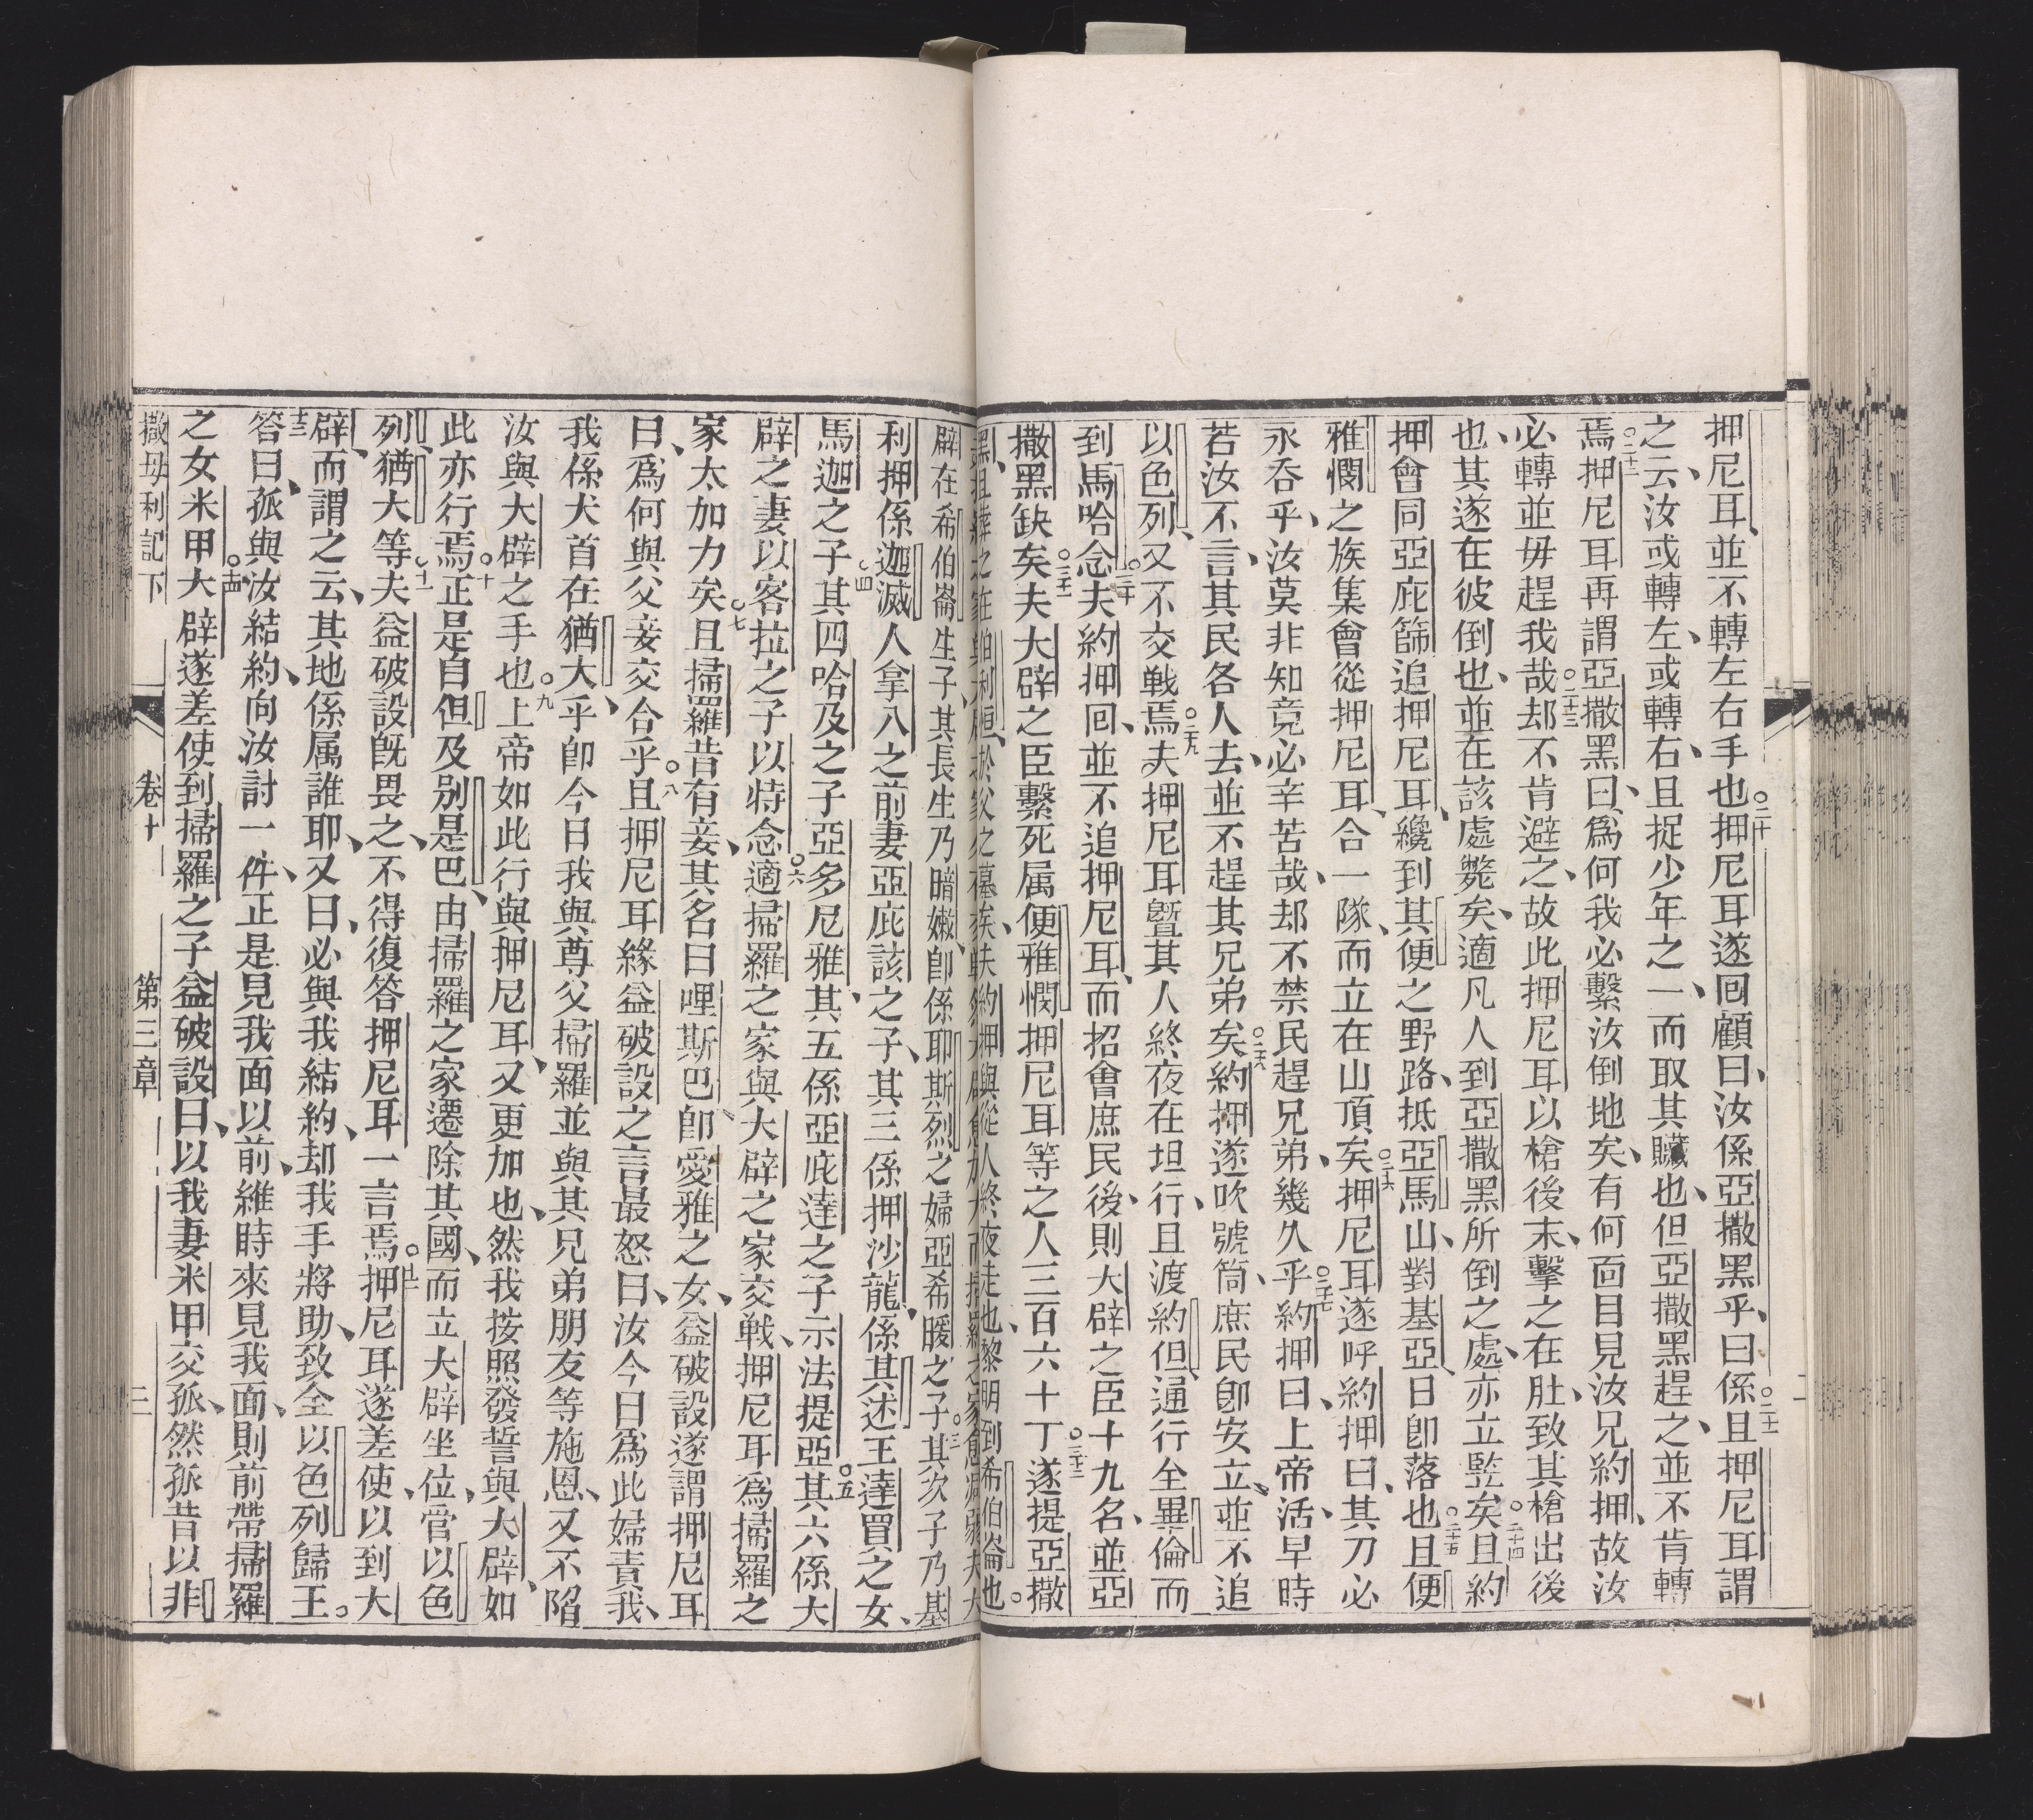 押尼耳、並不轉左右手也。二十押尼耳遂回顧曰、汝係亞撒黑乎、曰係。二十一且押尼耳謂
之云、汝或轉左、或轉右、且捉少年之一、而取其贓也、但亞撒黑趕之、並不肯轉
焉。二十二押尼耳再謂亞撒黑曰、爲何我必繫汝倒地矣、有何面目見汝兄約押、故汝
必轉並毋趕我哉。二十三却不肯避之、故此押尼耳以槍後末、擊之在肚、致其槍出後
也、其遂在彼倒也、並在該處斃矣、適凡人到亞撒黑所倒之處、亦立監矣。二十四且約
押會同亞庇篩追押尼耳、纔到其便之野路、抵亞馬山、對基亞、日卽落也。二十五且便
雅憫之族集會從押尼耳、合一隊、而立在山頂矣。二十六押尼耳遂呼約押曰、其刀必
永吞乎、汝莫非知竟必辛苦哉、却不禁民趕兄弟、幾久乎。二十七約押曰、上帝活、早時
若汝不言、其民各人去、並不趕其兄弟矣。二十八約押遂吹號筒、庶民卽安立、並不追
以色列、又不交戰焉。二十九夫押尼耳曁其人終夜在坦行、且渡約但、通行全畢倫而
到馬哈念。三十夫約押回、並不追押尼耳、而招會庶民後、則大辟之臣十九名、並亞
撒黑缺矣。三十一夫大辟之臣繫死属便雅憫押尼耳等之人三百六十丁。三十二遂提亞撒
於父之墓矣、夫約押與從人終夜走也、黎明到希伯崙也。
辟在希伯崙生子、其長生乃暗嫩、卽係耶斯烈之婦亞希暖之子。三其次子乃基
利押係迦滅人拿八之前妻亞庇該之子、其三係押沙龍、係其述王達買之女、
馬迦之子。四其四哈及之子亞多尼雅、其五係亞庇達之子示法提亞。五其六係大
辟之妻以客拉之子以特念。六適掃羅之家與大辟之家交戰、押尼耳爲掃羅之
家太加力矣。七且掃羅昔有妾、其名曰哩斯巴、卽愛雅之女、益破設遂謂押尼耳
曰、爲何與父妾交合乎。八且押尼耳緣益破設之言最怒曰、汝今日爲此婦責我、
我係犬首在猶大乎、卽今日我與尊父掃羅並與其兄弟朋友等施恩、又不陷
汝與大辟之手也。九上帝如此行與押尼耳、又更加也、然我按照發誓與大辟、如
此亦行焉。十正是自但及別是巴、由掃羅之家遷除其國、而立大辟坐位、管以色
列、猶大等。十一夫益破設旣畏之、不得復答押尼耳一言焉。十二押尼耳遂差使、以到大
辟、而謂之云、其地係属誰耶、又曰、必與我結約、却我手將助、致全以色列歸王。
十三答曰、孤與汝結約、向汝討一件、正是見我面以前、維時來見我面、則前帶掃羅
之女米甲。十四大辟遂差使到掃羅之子益破設曰、以我妻米甲交孤、然孤昔以非
撒母利記下　卷十　第三章　三